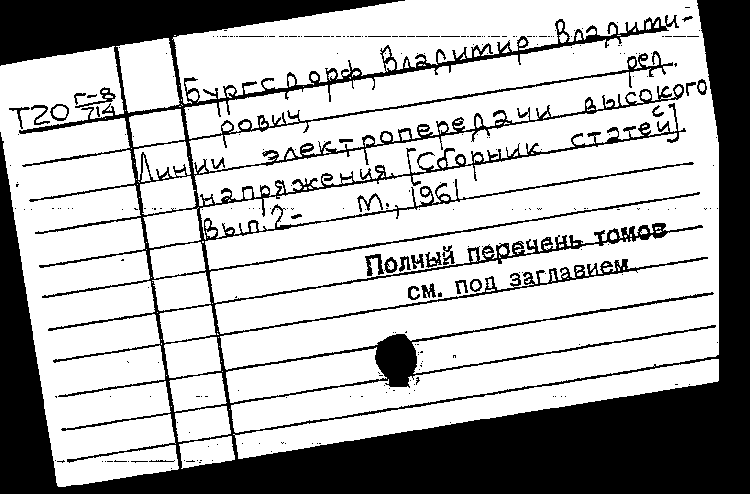 Бургсдорф, Владимир Владими-
Т20 Г-8/714
рович, ред.
Линии электропередачи высокого
напряжения. [Сборник статей].
Вып. 2- М., 1961
Полный перечень томов
см. под заглавием